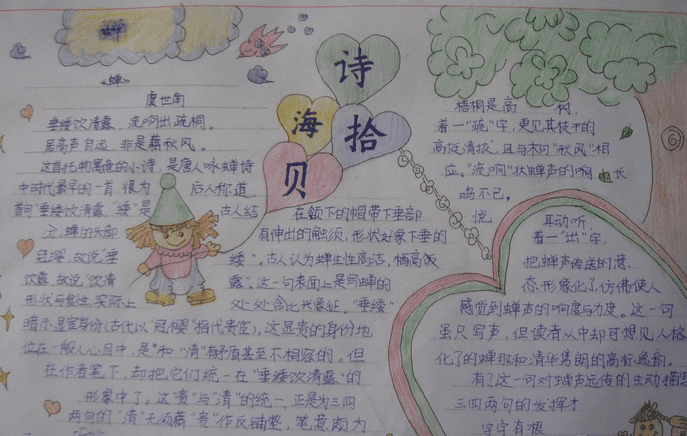 诗
海
拾
贝
《蝉》
虞世南
垂緌饮清露，流响出疏桐。
居高声自远，非是藉秋风。
这首托物寓意的小诗，是唐人咏蝉诗
中时代最早的一首，很为 后人称道。
首句"垂緌饮清露，"緌"是 古人结
在颔下的帽带下垂部
分，蝉的头部 有伸出的触须，形状好象下垂的
且 ，故说"垂 緌"。古人认为蝉生性高洁，栖高饮
饮露，故说"饮清 露"。这一句表面上是写蝉的
形状与食性，实际上 处处含比兴象征。"垂緌"
暗示显宦身份(古代以"冠缨"指代贵宦)。这显贵的身份地
位在一般人心目中，是和"清"有矛盾甚至不相容的。但
在作者笔下，却把它们统一在"垂緌饮清露"的
形象中了。这"贵"与"清"的统一，正是为三四
两句的"清"无须藉"贵"作反铺垫，笔意颇为
梧桐是高 树，
着一"疏"字，更见其枝干的
高挺清拔，且与末句"秋风"相
应。"流响"状蝉声的 长
鸣不已。
悦 耳动听，
着一"出"字，
把蝉声传送的意
态形象化了，仿佛使人
感觉到蝉声的响度与力度。这一句
虽只写声，但读者从中却可想见人格
化了的蝉那和清华隽朗的高标逸韵。
有了这一句对蝉声远传的生动描
三四两句的发挥才
字字有根